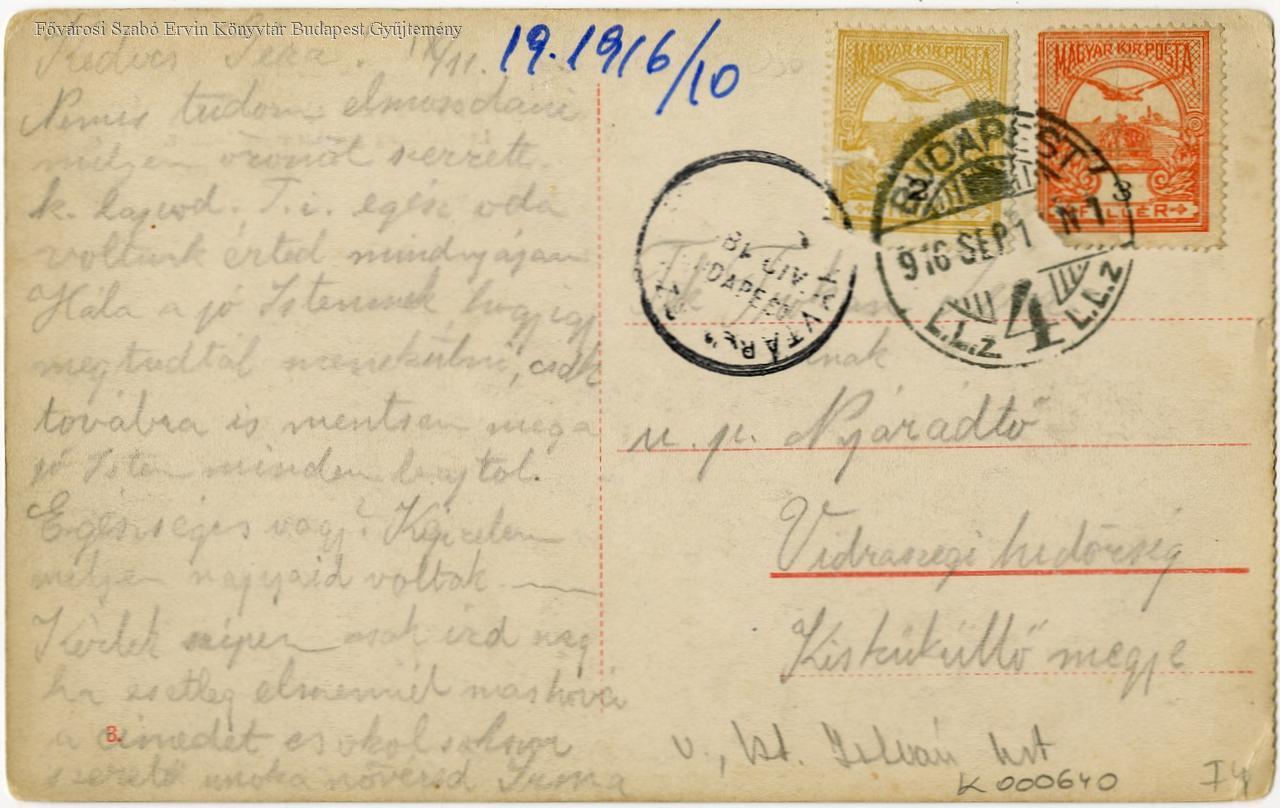 Fővárosi Szabó Ervin Könyvtár Budapest Gyűjtemény
Kedves IX/11.
19.1916/10
Nemis tudom elmondani
milyen örömöt szerzett
k. lapod. T. i. egész oda
voltunk érted mindnyájan
Hála a jó Istennek, hogy így
megtudtál menekülni, csak
továbbra is mentsen meg a
jó Isten minden bajtol.
Egészséges vagy? Képzelem
milyen napjaid voltak
Kérlek szépen csak írd meg
ha esetleg elmennél máshová
a címedet csokol sokszor
szerető unoka nővéred Ilona
B.
MAGYAR KIR. POSTA
2
MAGYAR KIR. POSTA
3
FILLER
BUDAPEST
916 SEP 1 N 1
L.L.z 4 L.L.z
nak
u. p. Nyárádtő
Vidraszegi hidőrség
Kisküküllő megye
v., Szt. István krt
K 000640